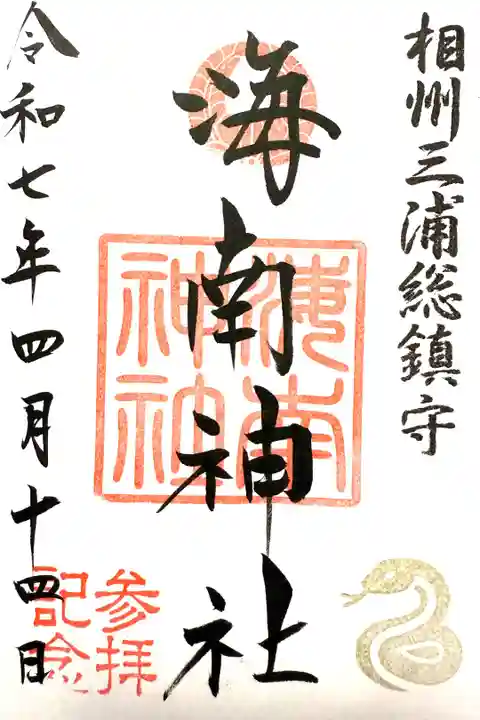 相州三浦総鎮守
海南神社
海南神社
令和七年四月十四日
参拝記念